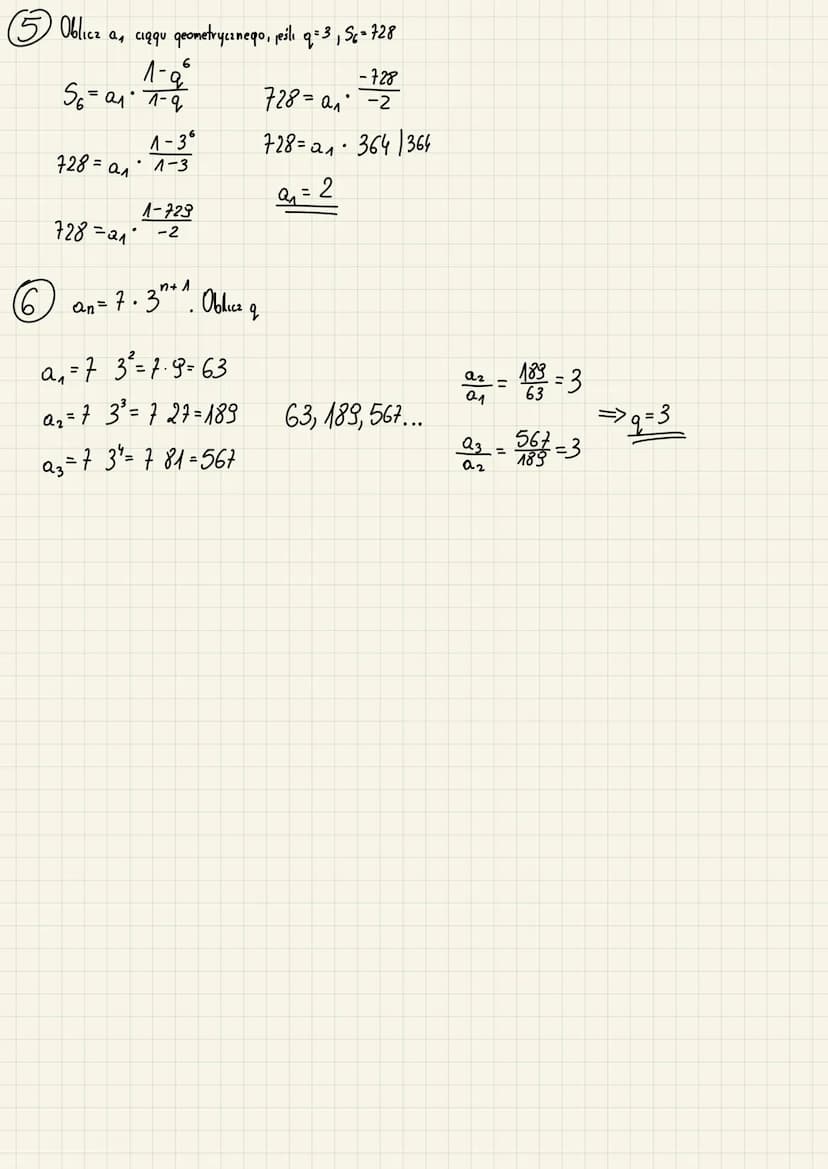 5 Oblicz a₁ ciągu geometrycznego, jeśli q=3, S₆=728
S₆ = a₁ · (1-q⁶)/(1-q)
728 = a₁ · (1-3⁶)/(1-3)
728 = a₁ · (1-729)/(-2)
728 = a₁ · (-728)/(-2)
728 = a₁ · 364 | 364
a₁ = 2
6 an = 7 · 3ⁿ⁺¹. Oblicz q
a₁ = 7 3² = 7 · 9 = 63
a₂ = 7 3³ = 7 27 = 189
a₃ = 7 3⁴ = 7 81 = 567
63, 189, 567...
a₂/a₁ = 189/63 = 3
a₃/a₂ = 567/189 = 3
⇒ q = 3